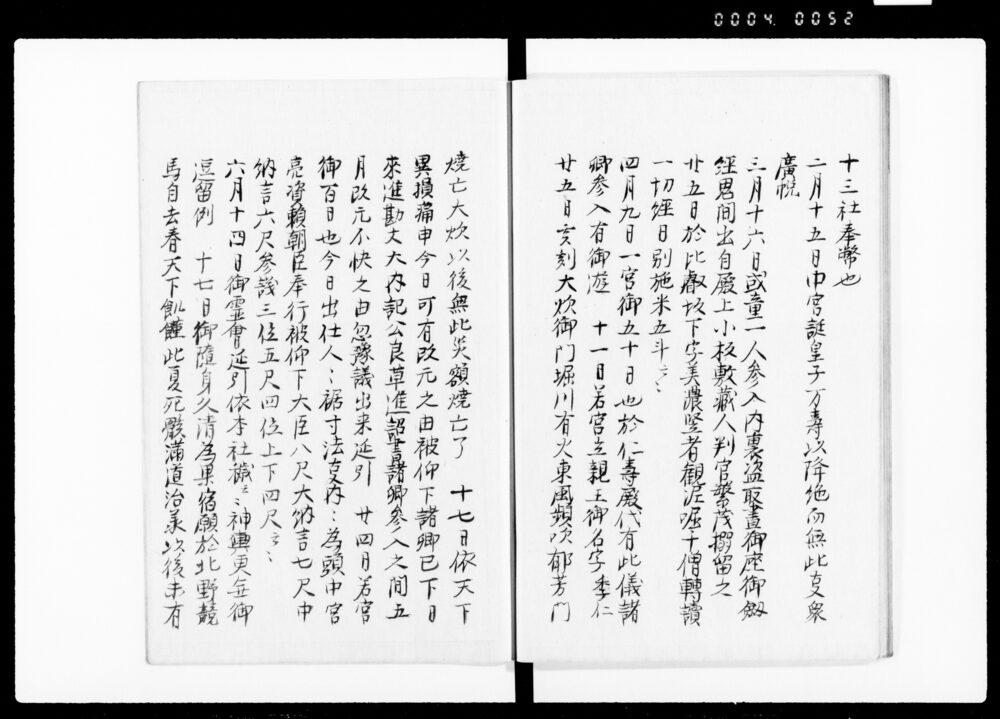 0004 0052
十三社奉幣也
二月十五日中宮誕皇子万寿以降絶而無此事衆
廣悦
三月十六日或童一人参入内裏盗取晝御座御劔
經男間出自殿上小板敷蔵人判官繁茂搦留之
廿五日於比叡坂下字美濃竪者觀渥啒千僧轉讀
一切經日別施米五斗云々
四月九日一宮御五十日也於仁壽殿代有此儀諸
卿参入有御遊　十一日若宮立親王御名字季仁
廿五日亥刻大炊御門堀川有火東風頻吹郁芳門
焼亡大炊以後無此災額焼亡了　十七日依天下
異損痛申今日可有改元之由被仰下諸卿已下日
來進勘文大内記公良草進詔書諸卿参入之間五
月改元不快之由忽豫議出来延引　廿四日若宮
御百日也今日出仕人々裾寸法支内々為頭中宮
亮資賴朝臣奉行被仰下大臣八尺大納言七尺中
納言六尺参議三位五尺四位上下四尺云々
六月十四日御霊會延引依本社穢云々神輿更無御
逗留例　十七日御隨身久清為果宿願於北野競
馬自去春天下飢饉此夏死骸滿道治承以後未有